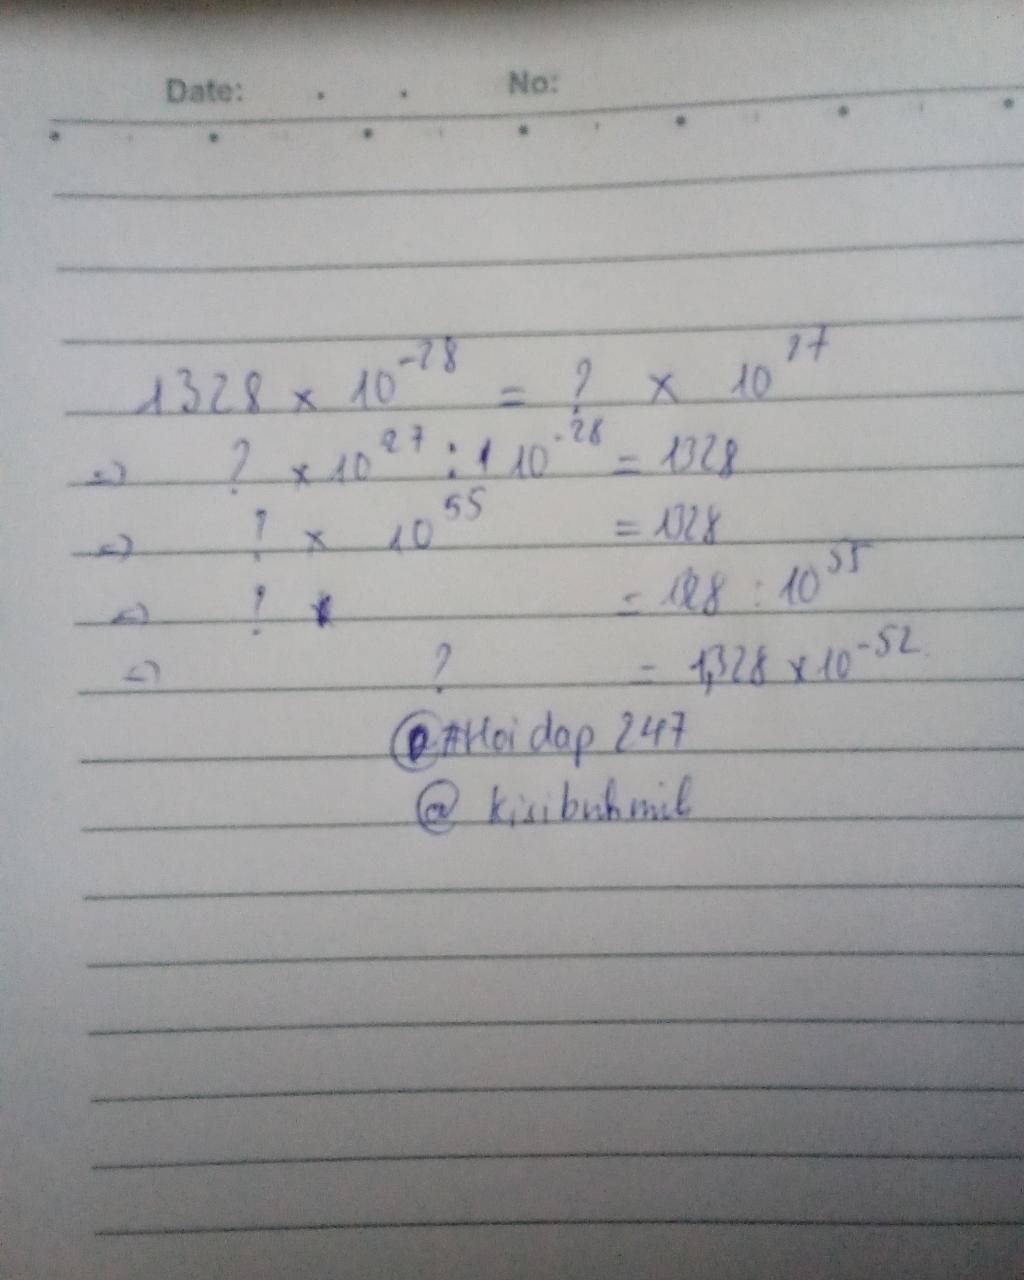 Date: . . No:
1328 × 10^-28 = ? × 10^27
=> ? × 10^27 : 1 10^-28 = 1328
=> ? × 10^55 = 1328
=> ? = 128 : 10^55
=> ? = 1,328 × 10^-52
@#Hoi dap 247
@ kisibuhmil